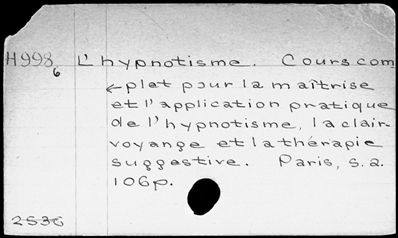 H998 L'hypnotisme. Cours com
6
plet pour la maîtrise
et l'application pratique
de l'hypnotisme, la clair-
voyange et la thérapie
suggestive. Paris, s.a.
106p.
2536